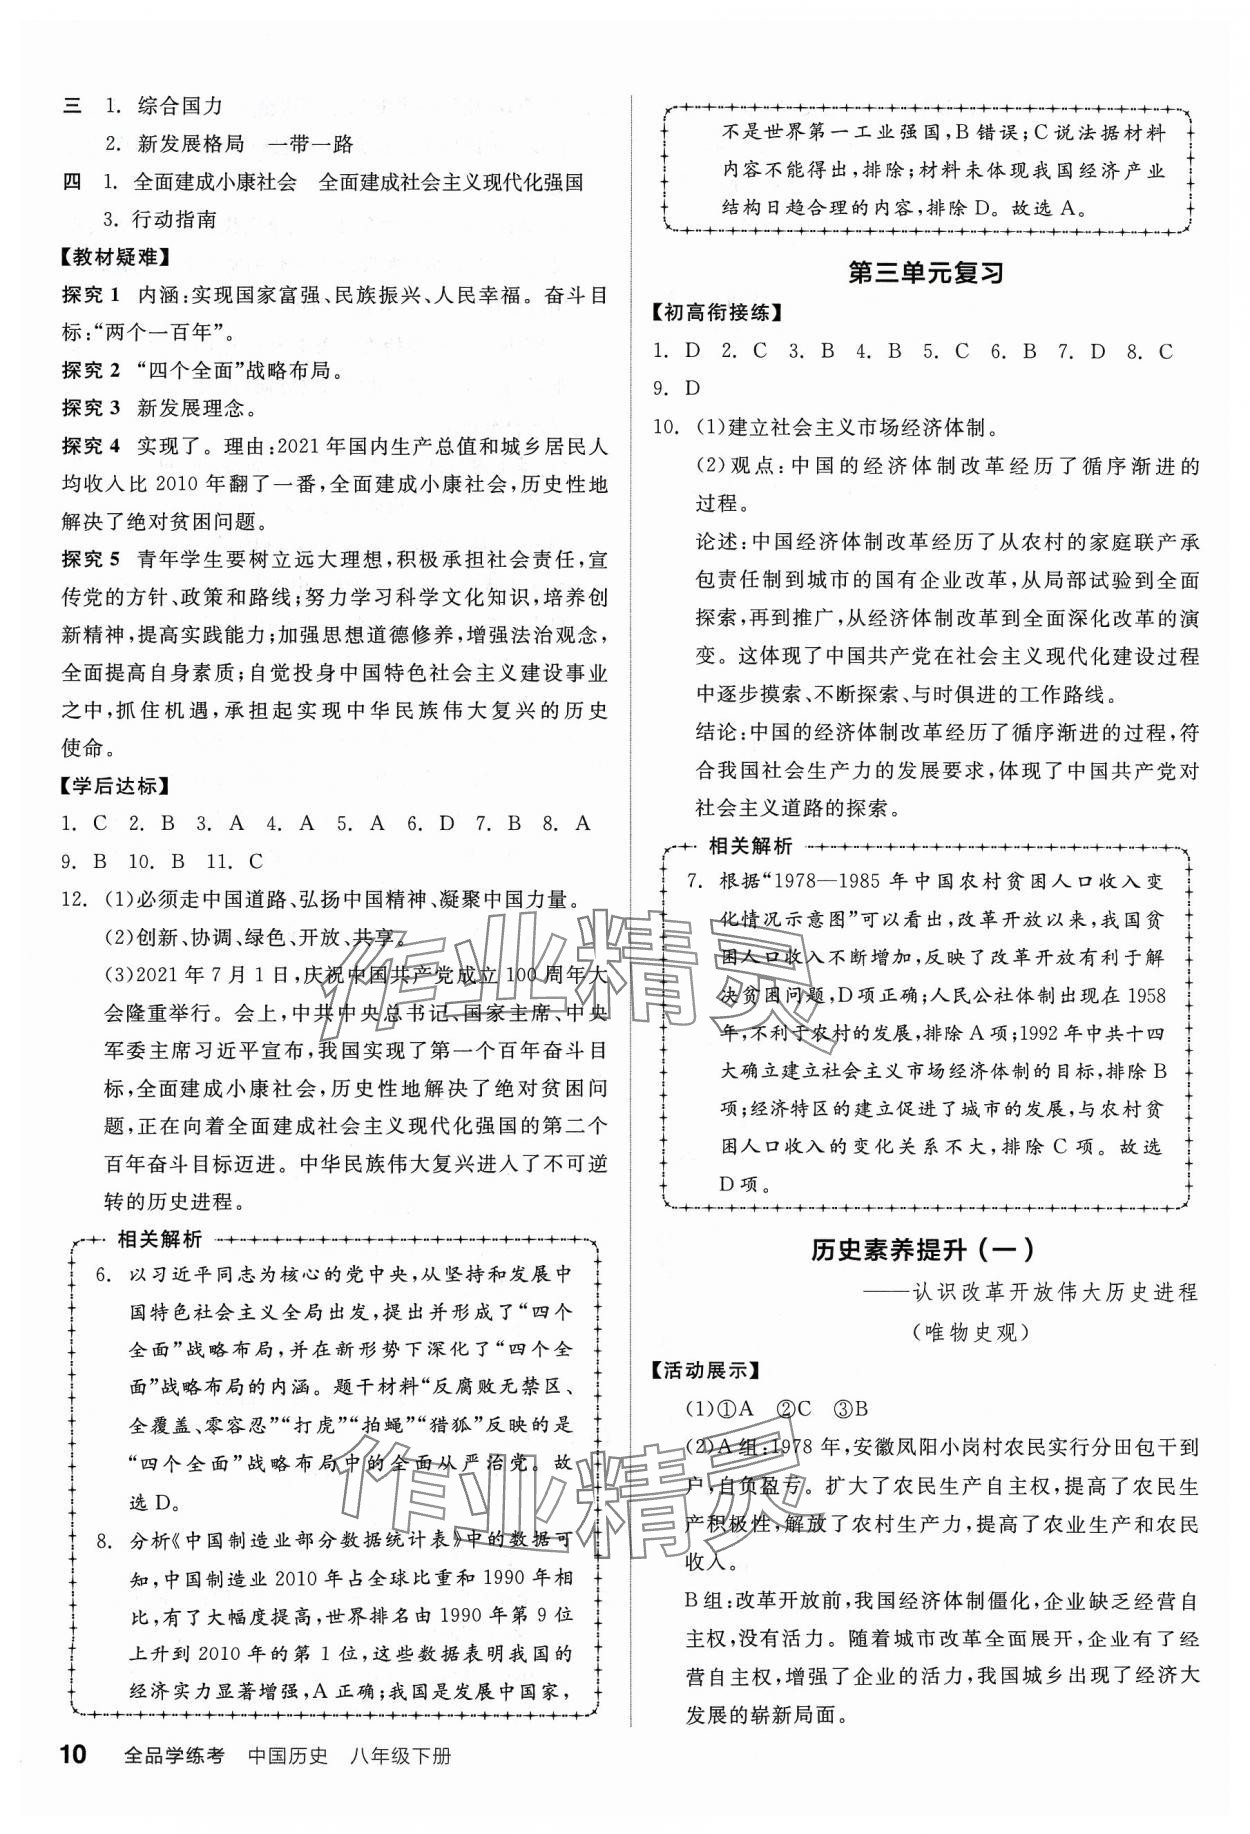 三 1. 综合国力
2. 新发展格局 一带一路
四 1. 全面建成小康社会 全面建成社会主义现代化强国
3. 行动指南
【教材疑难】
探究 1 内涵:实现国家富强、民族振兴、人民幸福。奋斗目
标:“两个一百年”。
探究 2 “四个全面”战略布局。
探究 3 新发展理念。
探究 4 实现了。理由:2021 年国内生产总值和城乡居民人
均收入比 2010 年翻了一番,全面建成小康社会,历史性地
解决了绝对贫困问题。
探究 5 青年学生要树立远大理想,积极承担社会责任,宣
传党的方针、政策和路线;努力学习科学文化知识,培养创
新精神,提高实践能力;加强思想道德修养,增强法治观念,
全面提高自身素质;自觉投身中国特色社会主义建设事业
之中,抓住机遇,承担起实现中华民族伟大复兴的历史
使命。
【学后达标】
1. C 2. B 3. A 4. A 5. A 6. D 7. B 8. A
9. B 10. B 11. C
12. (1)必须走中国道路、弘扬中国精神、凝聚中国力量。
(2)创新、协调、绿色、开放、共享。
(3)2021 年 7 月 1 日,庆祝中国共产党成立 100 周年大
会隆重举行。会上,中共中央总书记、国家主席、中央
军委主席习近平宣布,我国实现了第一个百年奋斗目
标,全面建成小康社会,历史性地解决了绝对贫困问
题,正在向着全面建成社会主义现代化强国的第二个
百年奋斗目标迈进。中华民族伟大复兴进入了不可逆
转的历史进程。
相关解析
6. 以习近平同志为核心的党中央,从坚持和发展中
国特色社会主义全局出发,提出并形成了“四个
全面”战略布局,并在新形势下深化了“四个全
面”战略布局的内涵。题干材料“反腐败无禁区、
全覆盖、零容忍”“打虎”“拍蝇”“猎狐”反映的是
“四个全面”战略布局中的全面从严治党。故
选 D。
8. 分析《中国制造业部分数据统计表》中的数据可
知,中国制造业 2010 年占全球比重和 1990 年相
比,有了大幅度提高,世界排名由 1990 年第 9 位
上升到 2010 年的第 1 位,这些数据表明我国的
经济实力显著增强,A 正确;我国是发展中国家,
10 全品学练考 中国历史 八年级下册
不是世界第一工业强国,B 错误;C 说法据材料
内容不能得出,排除;材料未体现我国经济产业
结构日趋合理的内容,排除 D。故选 A。
第三单元复习
【初高衔接练】
1. D 2. C 3. B 4. B 5. C 6. B 7. D 8. C
9. D
10. (1)建立社会主义市场经济体制。
(2)观点:中国的经济体制改革经历了循序渐进的
过程。
论述:中国经济体制改革经历了从农村的家庭联产承
包责任制到城市的国有企业改革,从局部试验到全面
探索,再到推广,从经济体制改革到全面深化改革的演
变。这体现了中国共产党在社会主义现代化建设过程
中逐步摸索、不断探索、与时俱进的工作路线。
结论:中国的经济体制改革经历了循序渐进的过程,符
合我国社会生产力的发展要求,体现了中国共产党对
社会主义道路的探索。
相关解析
7. 根据“1978—1985 年中国农村贫困人口收入变
化情况示意图”可以看出,改革开放以来,我国贫
困人口收入不断增加,反映了改革开放有利于解
决贫困问题,D项正确;人民公社体制出现在 1958
年,不利于农村的发展,排除 A 项;1992 年中共十四
大确立建立社会主义市场经济体制的目标,排除 B
项;经济特区的建立促进了城市的发展,与农村贫
困人口收入的变化关系不大,排除 C 项。故选
D 项。
历史素养提升(一)
——认识改革开放伟大历史进程
(唯物史观)
【活动展示】
(1)①A ②C ③B
(2)A 组:1978 年,安徽凤阳小岗村农民实行分田包干到
户,自负盈亏。扩大了农民生产自主权,提高了农民生
产积极性,解放了农村生产力,提高了农业生产和农民
收入。
B 组:改革开放前,我国经济体制僵化,企业缺乏经营自
主权,没有活力。随着城市改革全面展开,企业有了经
营自主权,增强了企业的活力,我国城乡出现了经济大
发展的崭新局面。
作业精灵
作业精灵